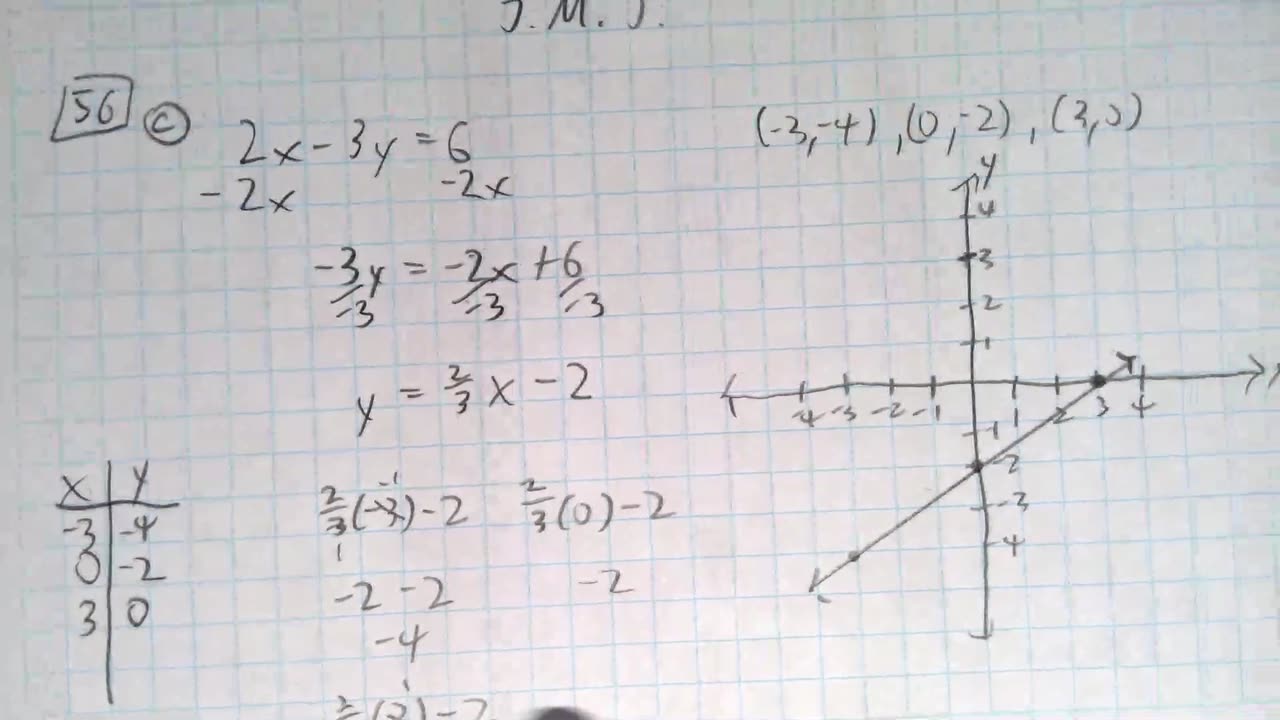 J. M. J.
56 c 2x - 3y = 6
-2x -2x
-3y = -2x + 6
-3 -3 -3
y = 2/3 x - 2
x y
-3 -4
0 -2
3 0
2/3 (-3) - 2
-1
1
-2 - 2
-4
2/3 (0) - 2
-2
(-3,-4) , (0,-2) , (3,0)
y
4
3
2
1
-4 -3 -2 -1 1 2 3 4
-1
-2
-3
-4